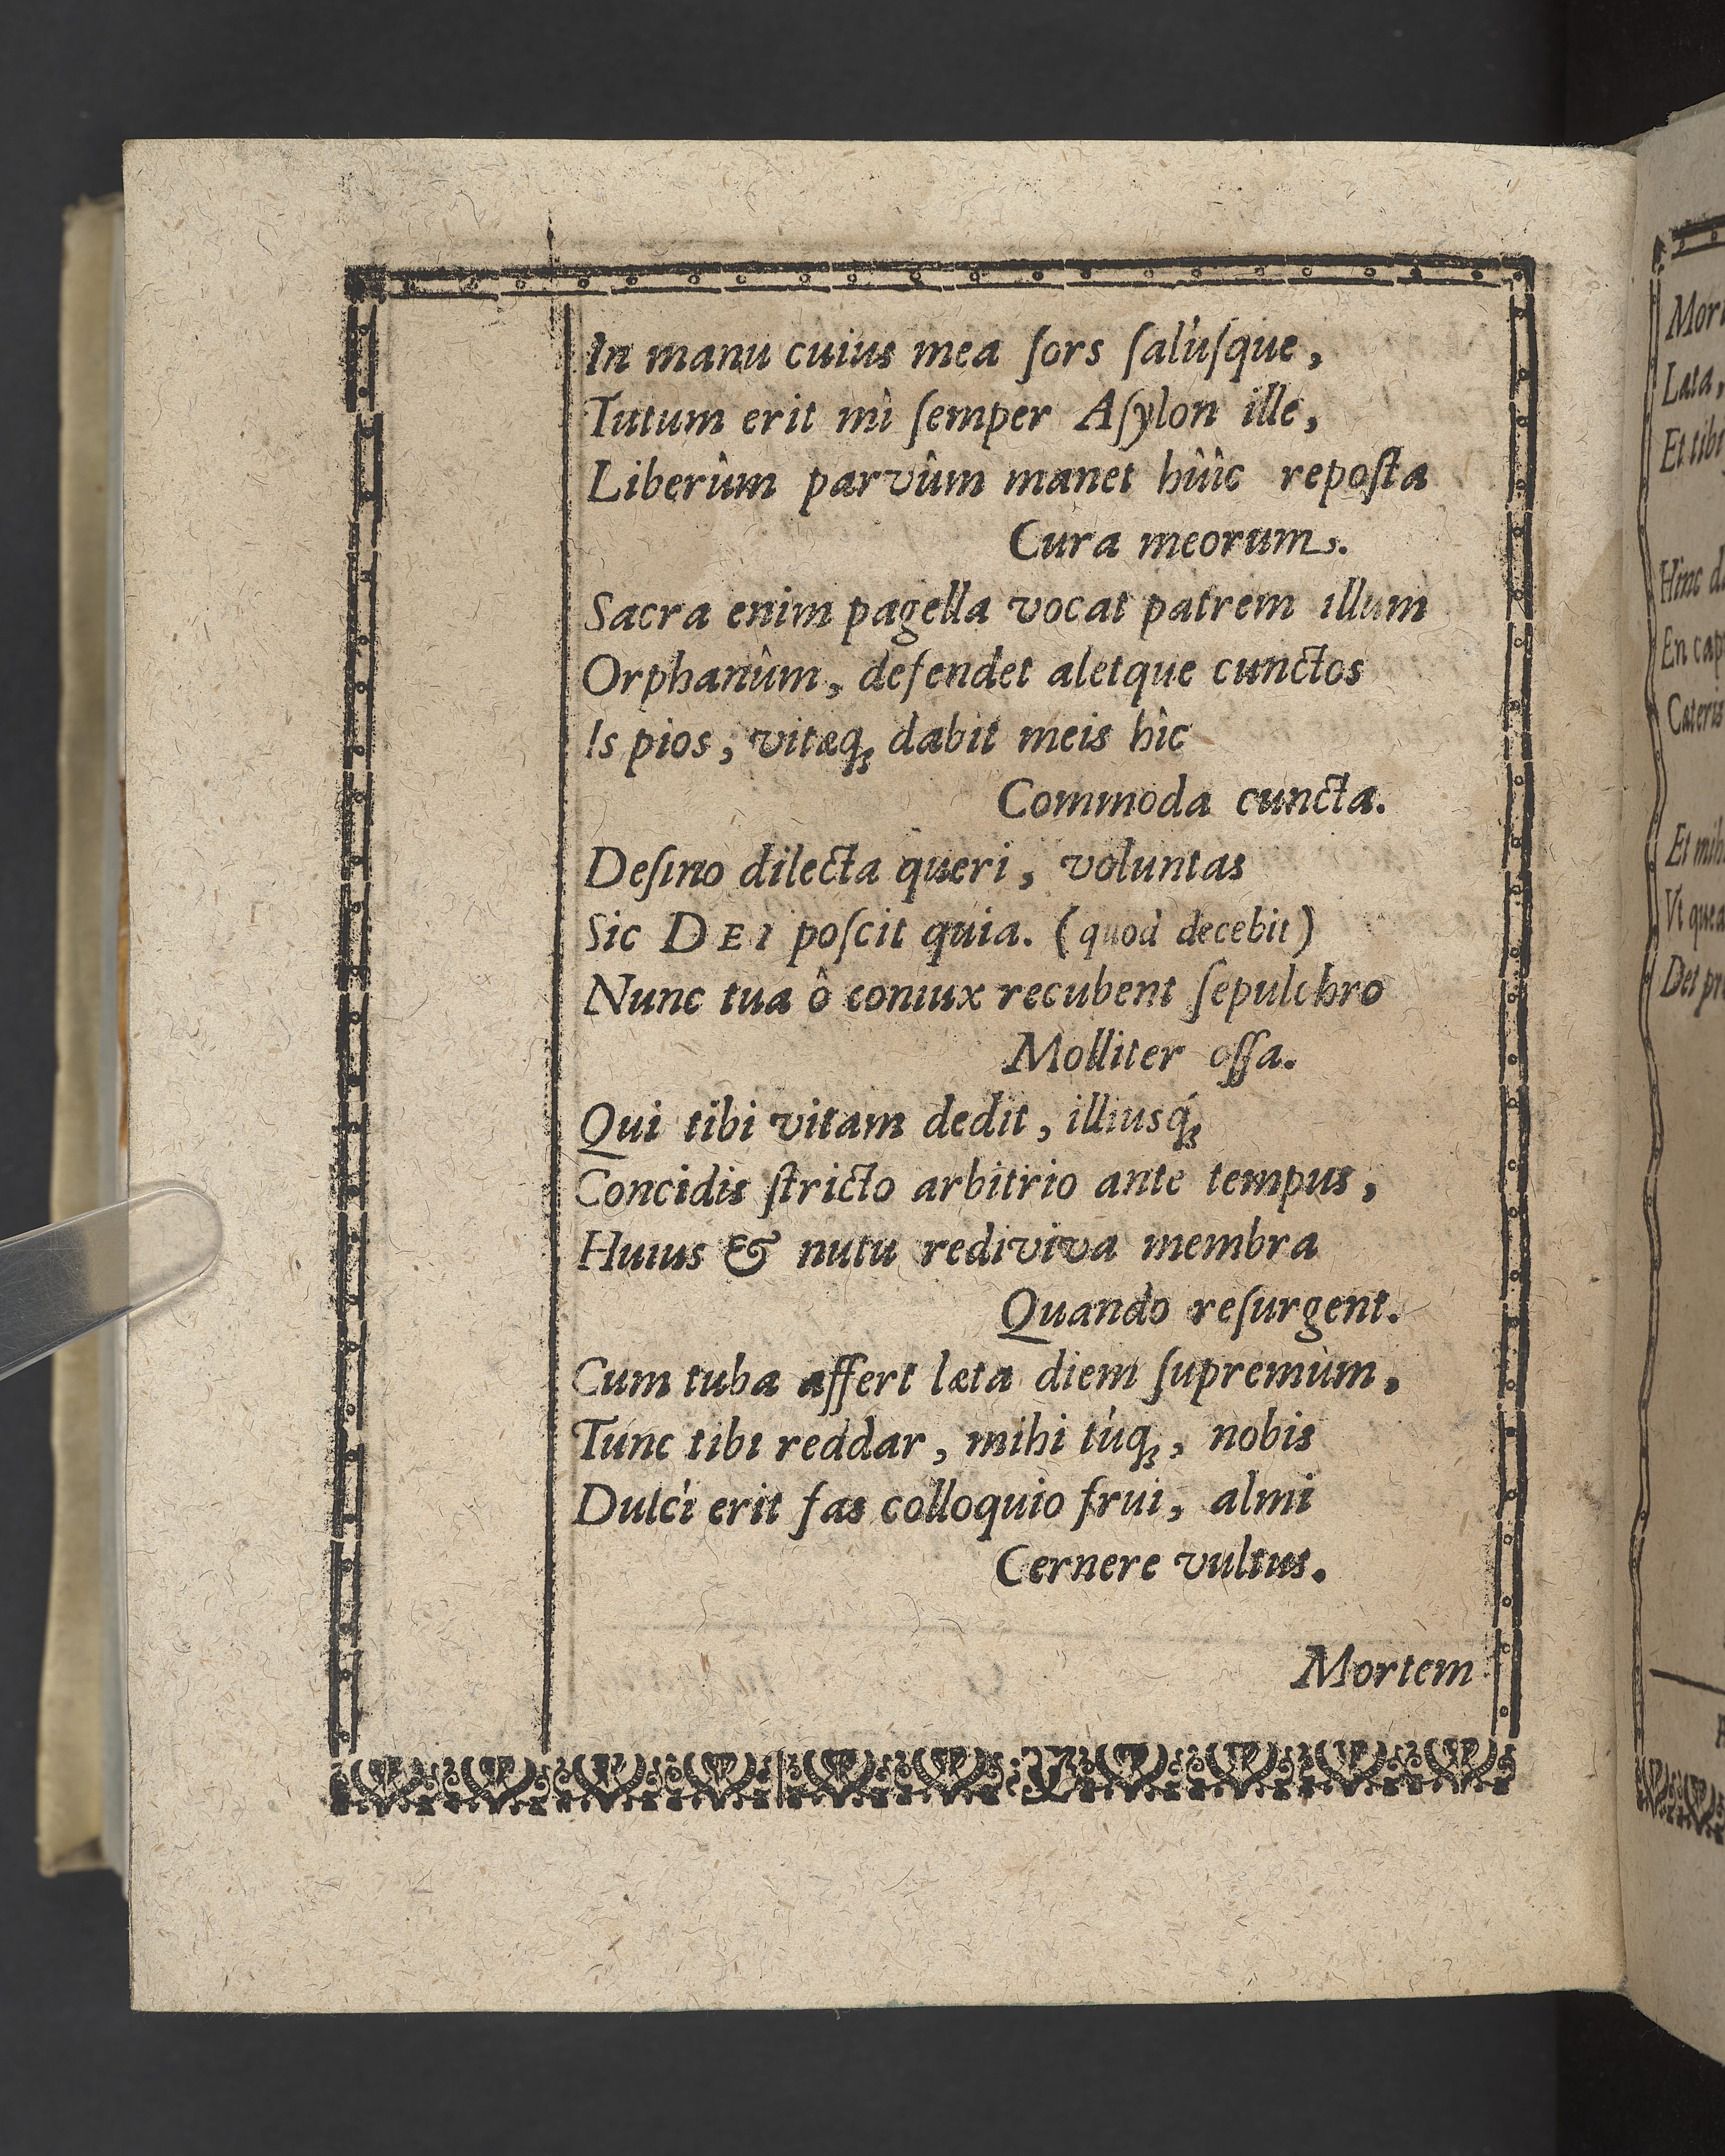 In manu cuius mea ſors ſalúſque,
Tutum erit mì ſemper Aſylon ille,
Liberûm parvûm manet hûîc repoſta
Cura meorum.
Sacra enim pagella vocat patrem illum
Orphanûm, defendet aletque cunctos
Is pios, vitæq; dabit meis hîc
Commoda cuncta.
Deſino dilecta queri, voluntas
Sic DEI poſcit quia. (quod decebit)
Nunc tua ô coniux recubent ſepulchro
Molliter oſſa.
Qui tibi vitam dedit, illiusq́;
Concidis ſtricto arbitrio ante tempus,
Huius & nutu rediviva membra
Quando reſurgent.
Cum tuba affert læta diem ſupremùm,
Tunc tibi reddar, mihi túq;, nobis
Dulci erit fas colloquio frui, almi
Cernere vultus.
Mortem
Lata,
Et tibi
Hinc
Et
Det